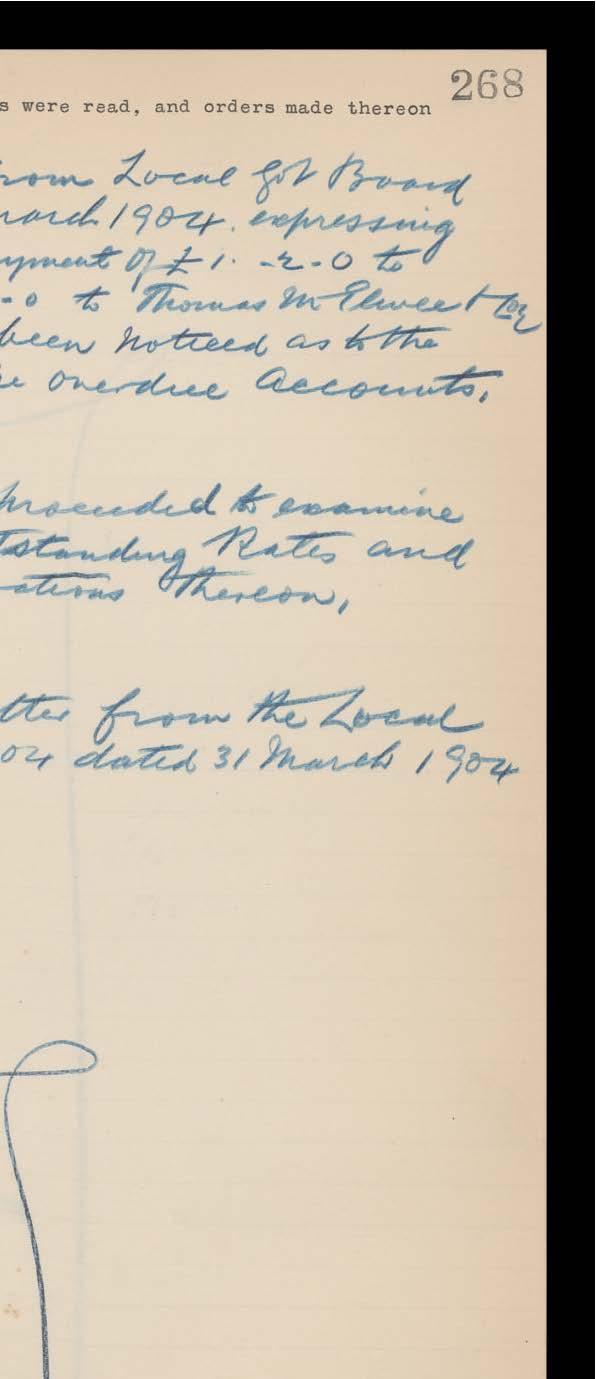 268
s were read, and orders made thereon
rom Local Gov Board
march 1904. expressing
yment of £1.-2-0 to
-0 to Thomas McElwee &
been noticed as to the
overdue Accounts.
proceeded to examine
tstanding Rates and
ations Thereon,
tter from the Local
04 dated 31 March 1904